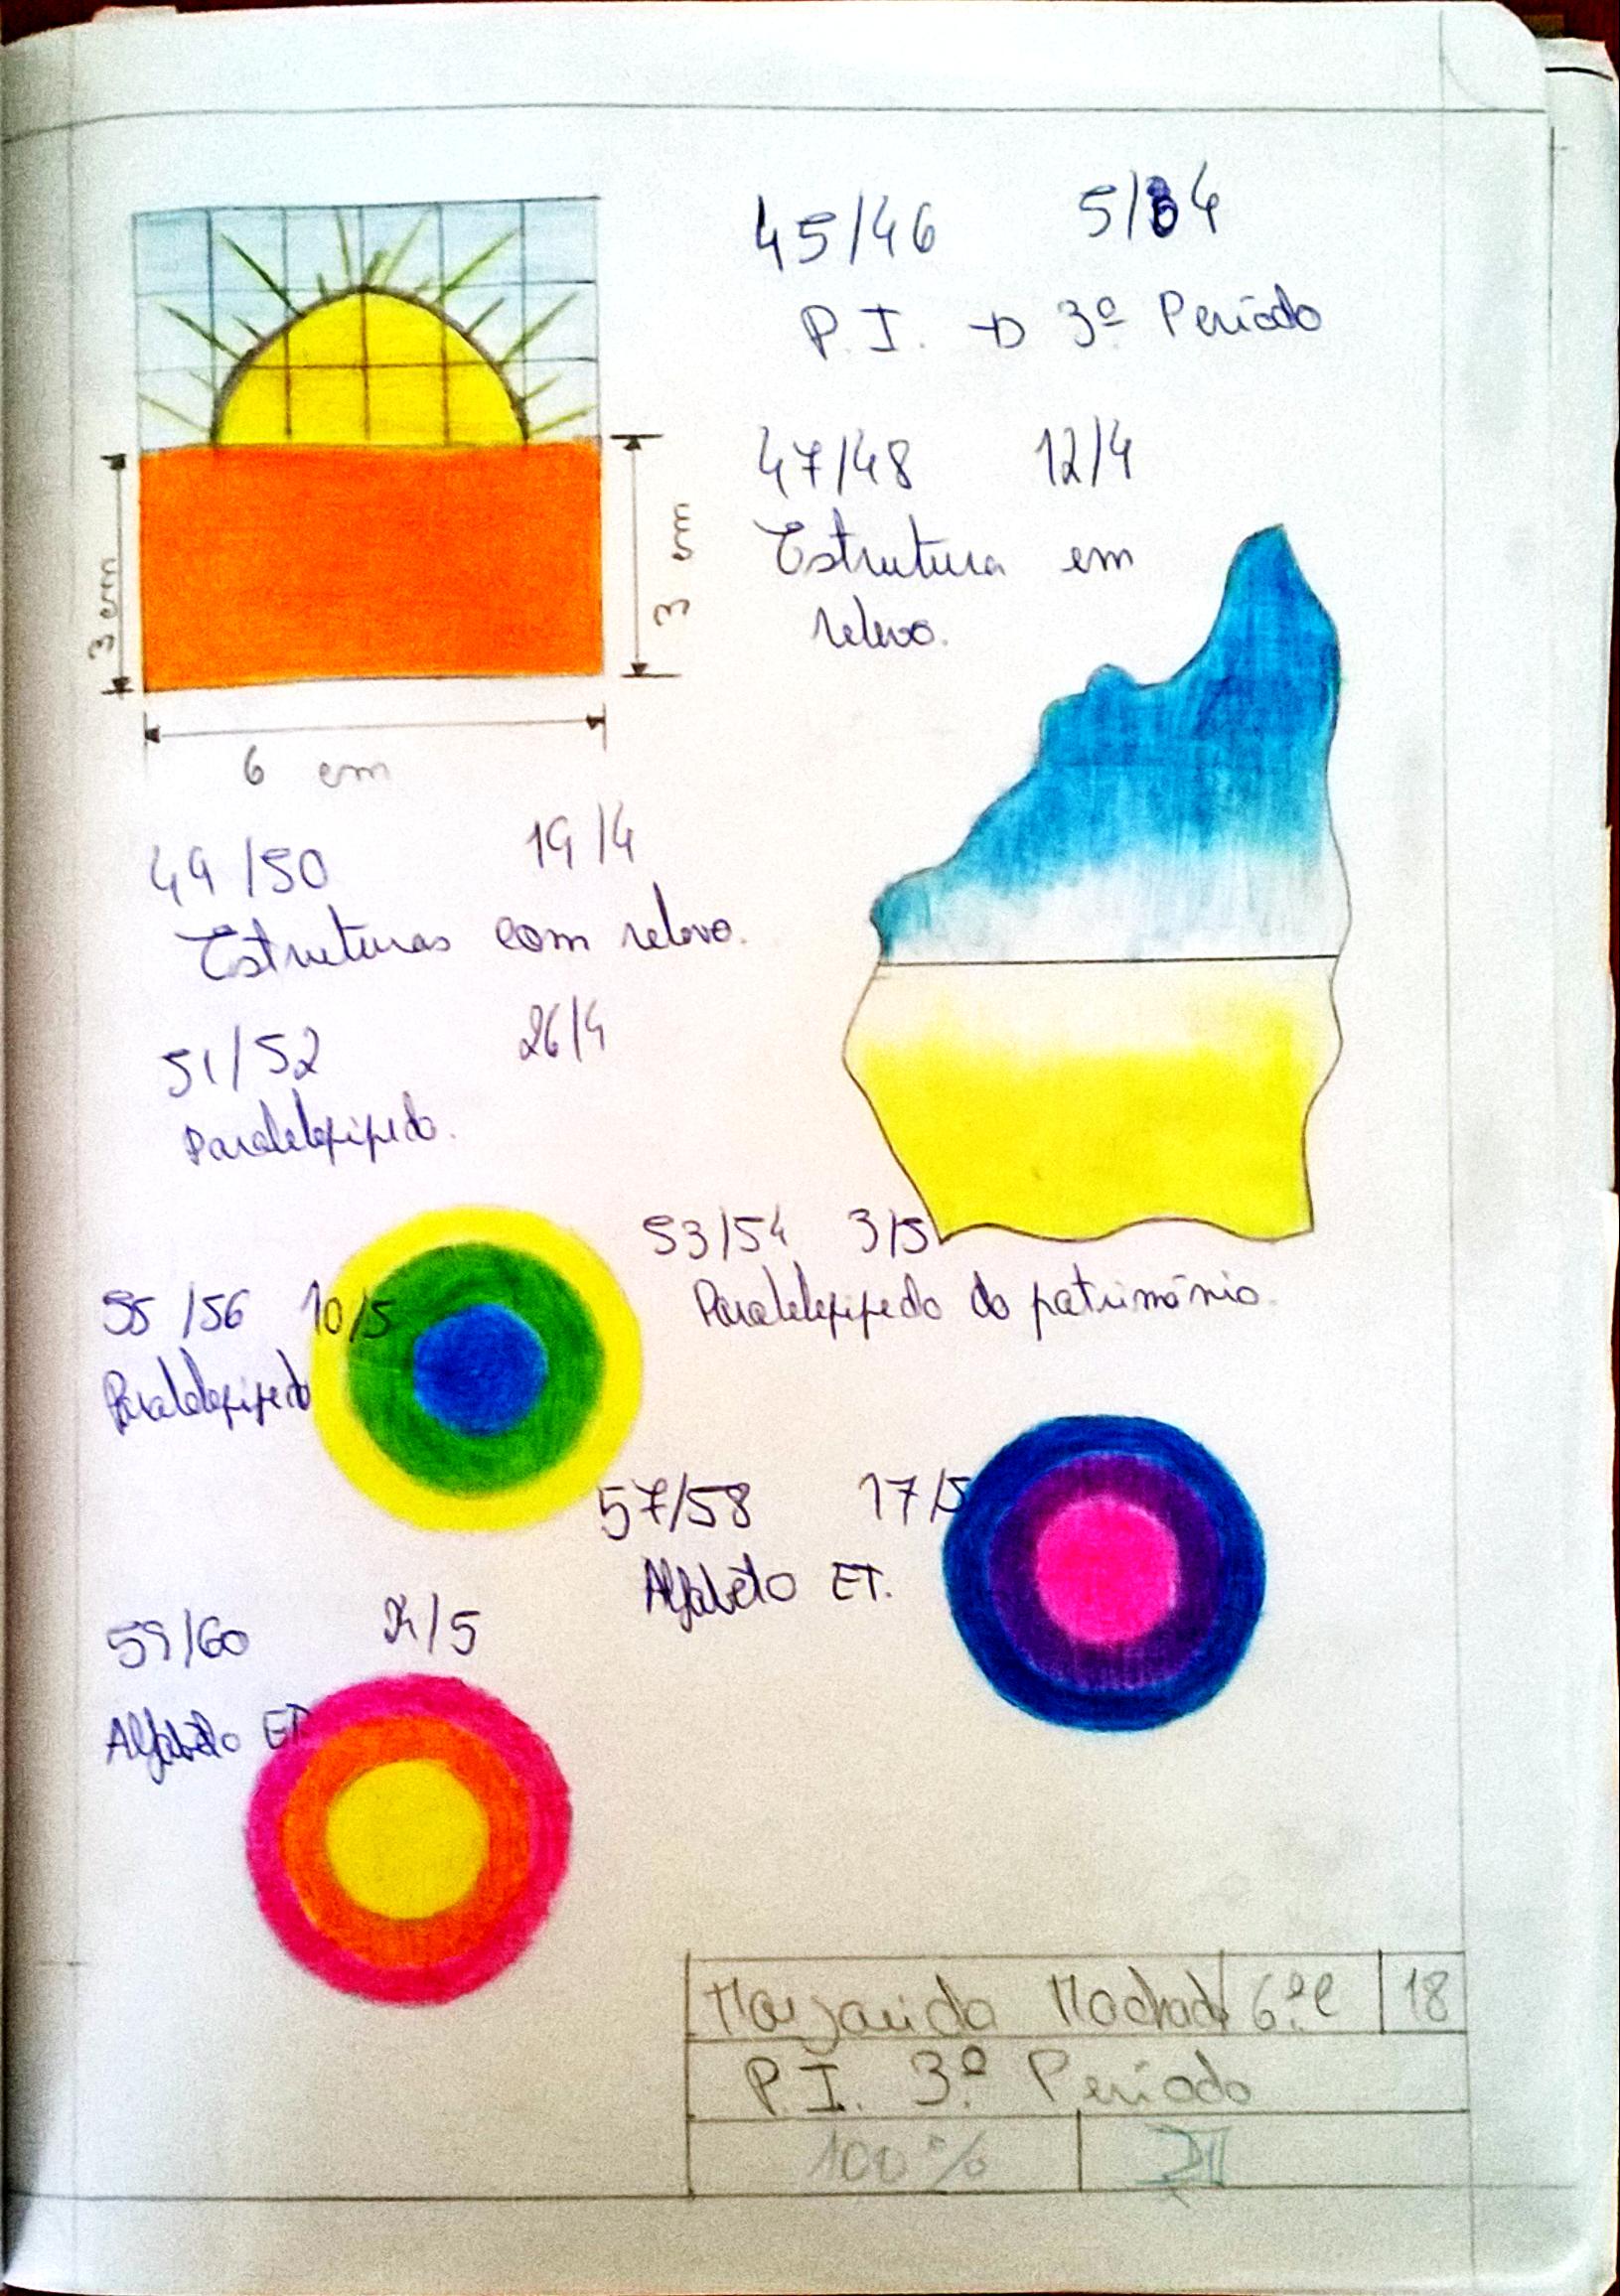 45/46 5/4
P.I. → 3º Período
47/48 12/4
Estrutura em
relevo.
3 cm
3 cm
6 cm
49/50 19/4
Estruturas com relevo.
51/52 26/4
Paralelepípedo.
53/54 3/5
Paralelepípedo do património.
55/56 10/5
Paralelepípedo
57/58 17/5
Alfabeto ET.
59/60 /5
Alfabeto ET
Margarida Machado 6.º 18
P.I. 3.º Período
100%